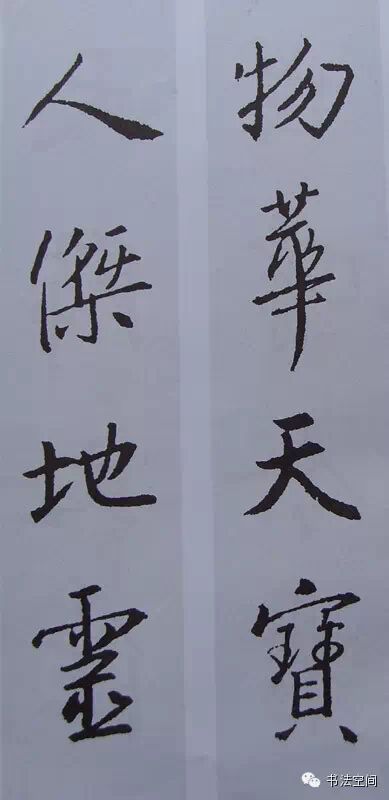 物華天寶
人傑地靈
书法空间